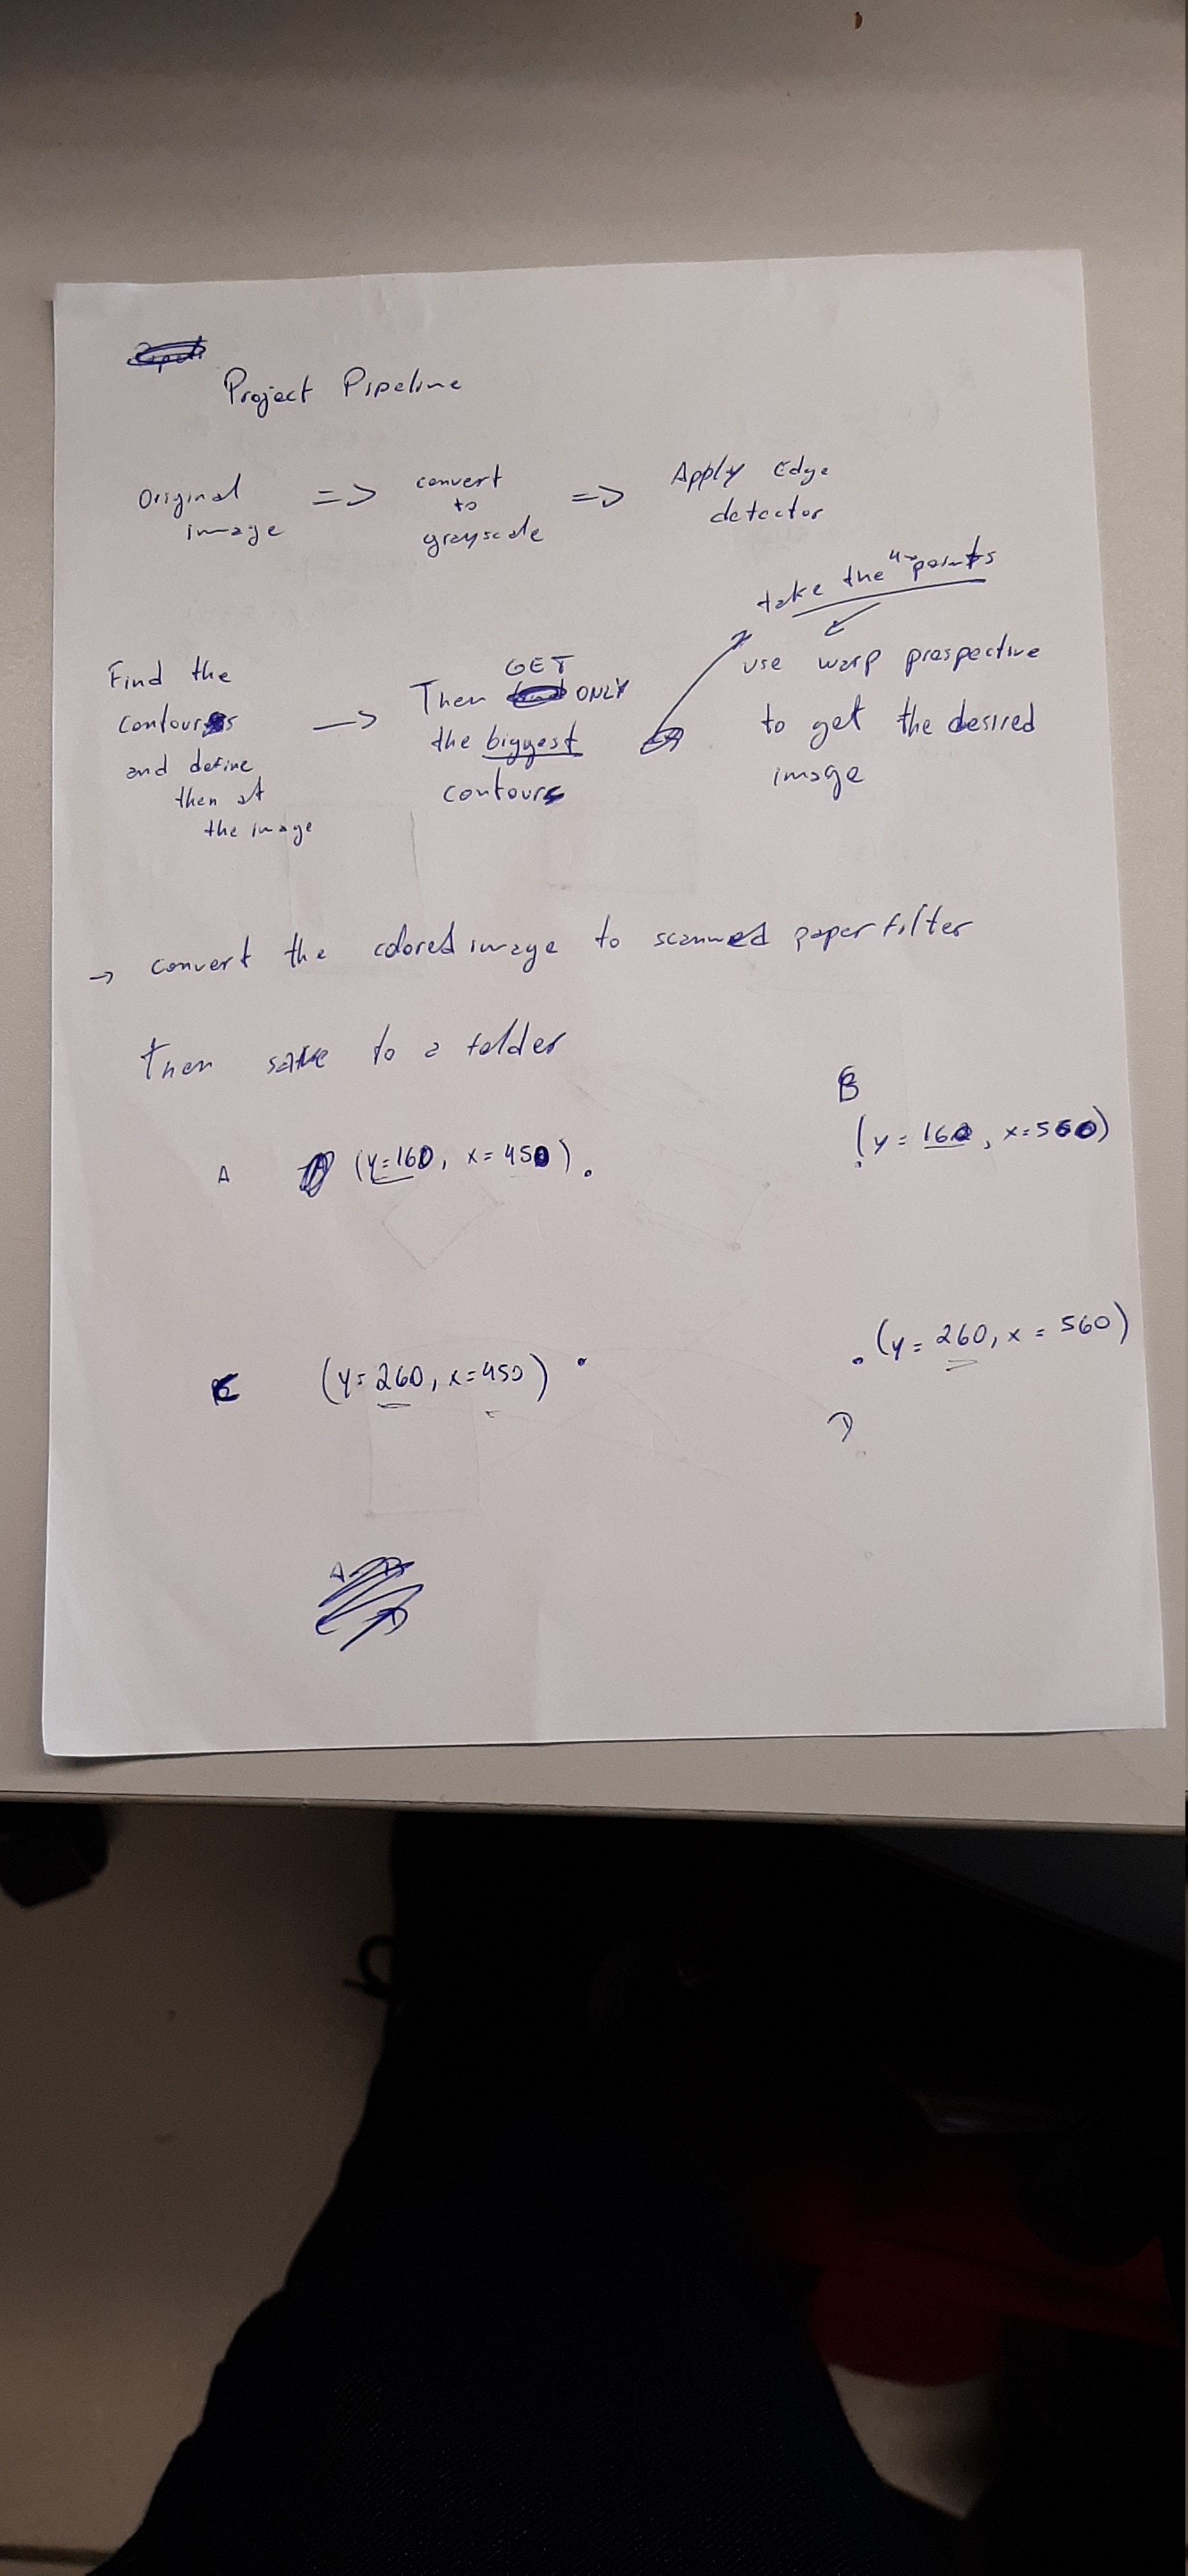 Project Pipeline
Original image => convert to grayscale => Apply Edge detector
take the 4 points
Find the contours and define then at the image -> Then GET ONLY the biggest contours
use warp prospective to get the desired image
-> convert the colored image to scanned paper filter
then save to a folder
A (y=160, x=450) .
B . (y=160, x=560)
C (y=260, x=450) .
D . (y=260, x=560)